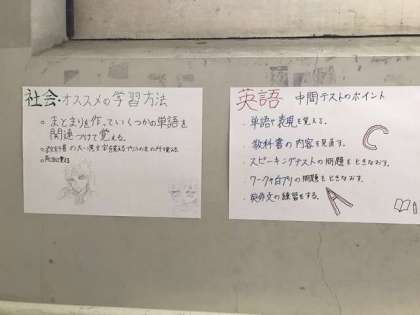 社会・オススメの学習方法
○まとまりを作っていくつかの単語を
関連づけて覚える。
英語 中間テストのポイント
・単語や表現を覚える。
・教科書の内容を見直す。
・スピーキングテストの問題をときなおす。
・ワークや白プリの問題をときなおす。
・英作文の練習をする。
C
A